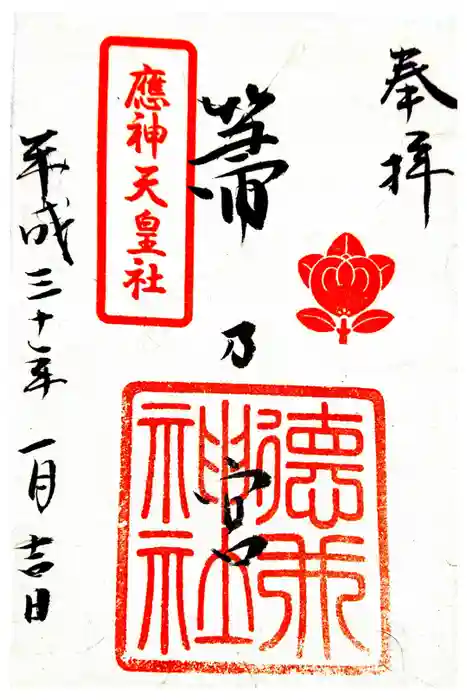 奉拝
箒乃宮
應神天皇社
神社
平成三十一年 一月吉日